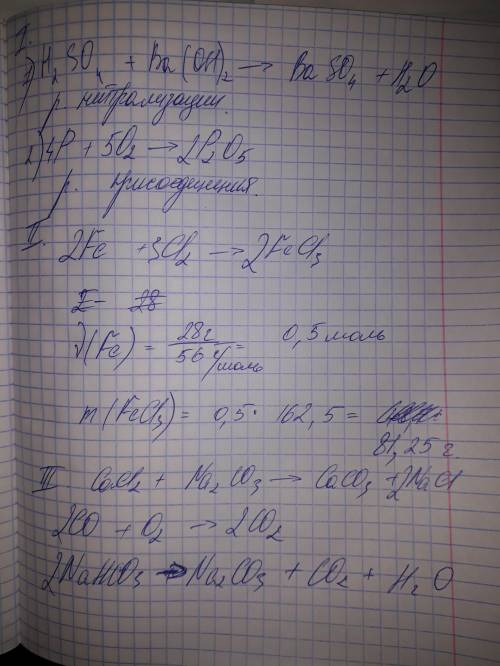 I.
1) H₂SO₄ + Ba(OH)₂ → BaSO₄ + H₂O
р. нитрализации.
2) 4P + 5O₂ → 2P₂O₅
р. присоединения.
II.
2Fe + 3Cl₂ → 2FeCl₃
ν(Fe) = 28г / 56 г/моль = 0,5 моль
m(FeCl₃) = 0,5 · 162,5 =
81,25 г.
III CaCl₂ + Na₂CO₃ → CaCO₃ + 2NaCl
2CO + O₂ → 2CO₂
2NaHCO₃ → Na₂CO₃ + CO₂ + H₂O